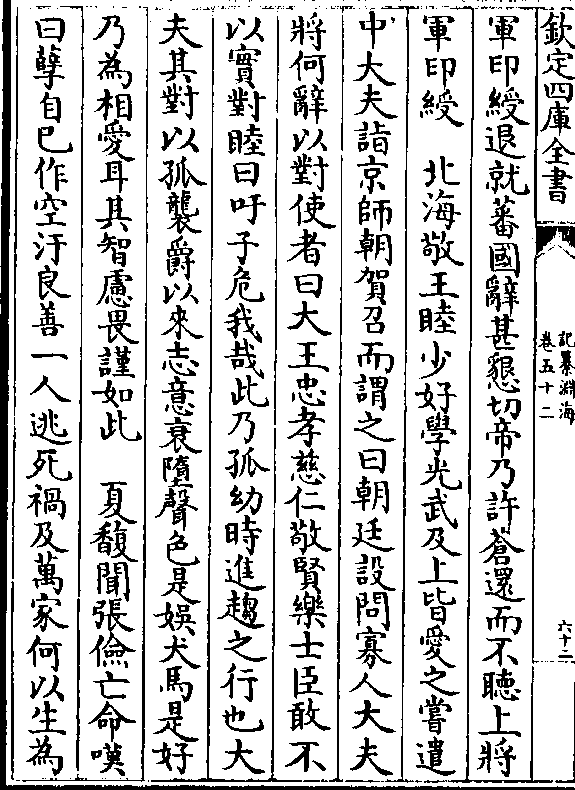 欽定四庫全書
記纂淵海
卷五十二
六十二
軍印綬退就蕃國辭甚懇切帝乃許蒼還而不聽上將
軍印綬　北海敬王睦少好學光武及上皆愛之嘗遣
中大夫詣京師朝賀召而謂之曰朝廷設問寡人大夫
將何辭以對使者曰大王忠孝慈仁敬賢樂士臣敢不
以實對睦曰吁子危我哉此乃孤幼時進趨之行也大
夫其對以孤襲爵以來志意衰墮聲色是娛犬馬是好
乃為相愛耳其智慮畏謹如此　夏馥聞張儉亡命嘆
曰孽自己作空汙良善一人逃死禍及萬家何以生為